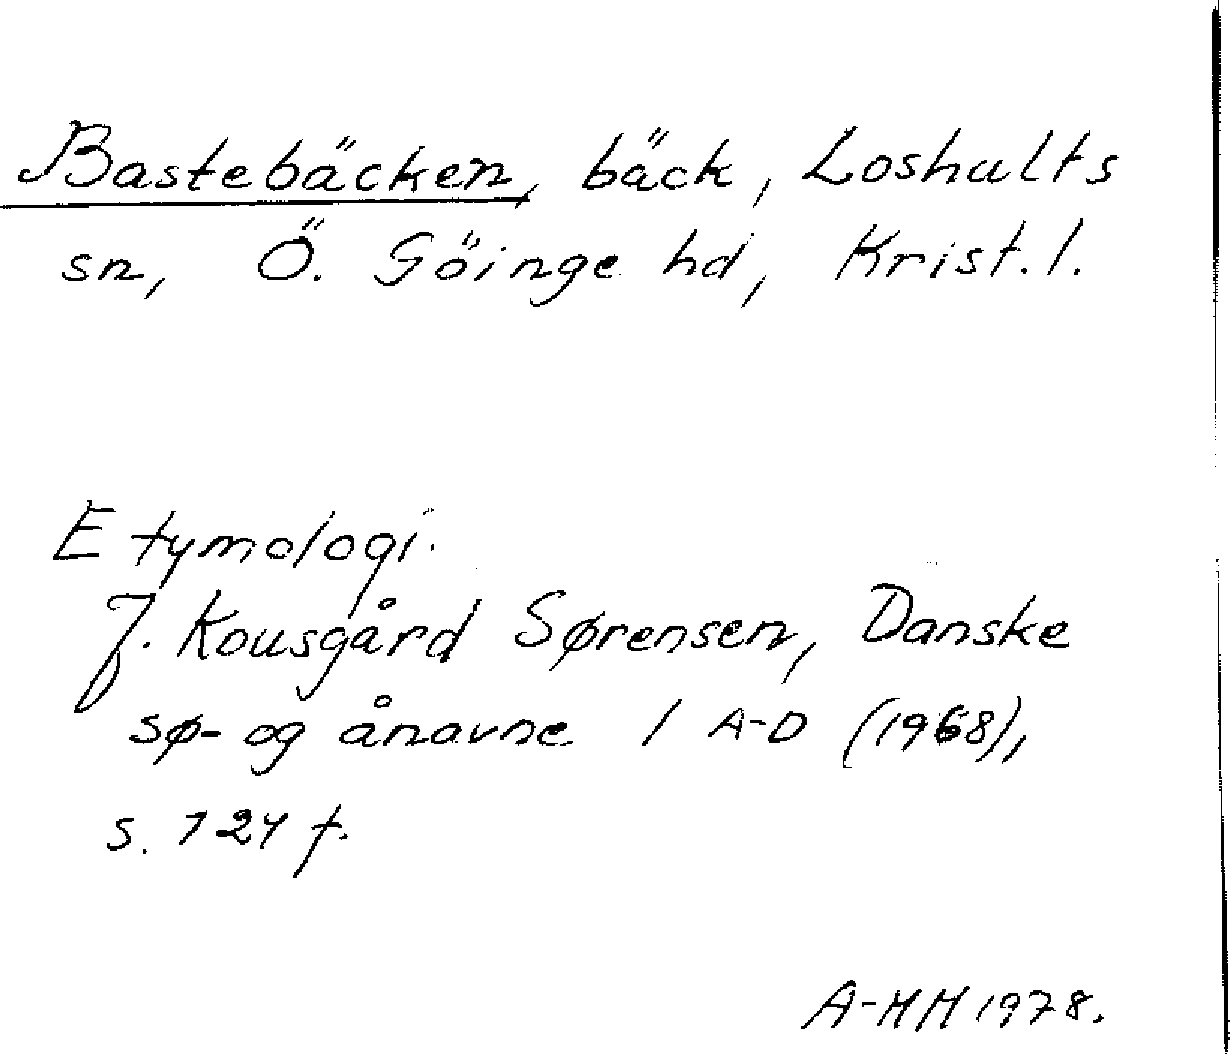 Bastebäcken, bäck, Loshults
sn, Ö. Göinge hd, Krist. l.
Etymologi.
J. Kousgård Sørensen, Danske
sø- og ånavne 1 A-D (1968),
s. 124 f.
A-MM 1978.